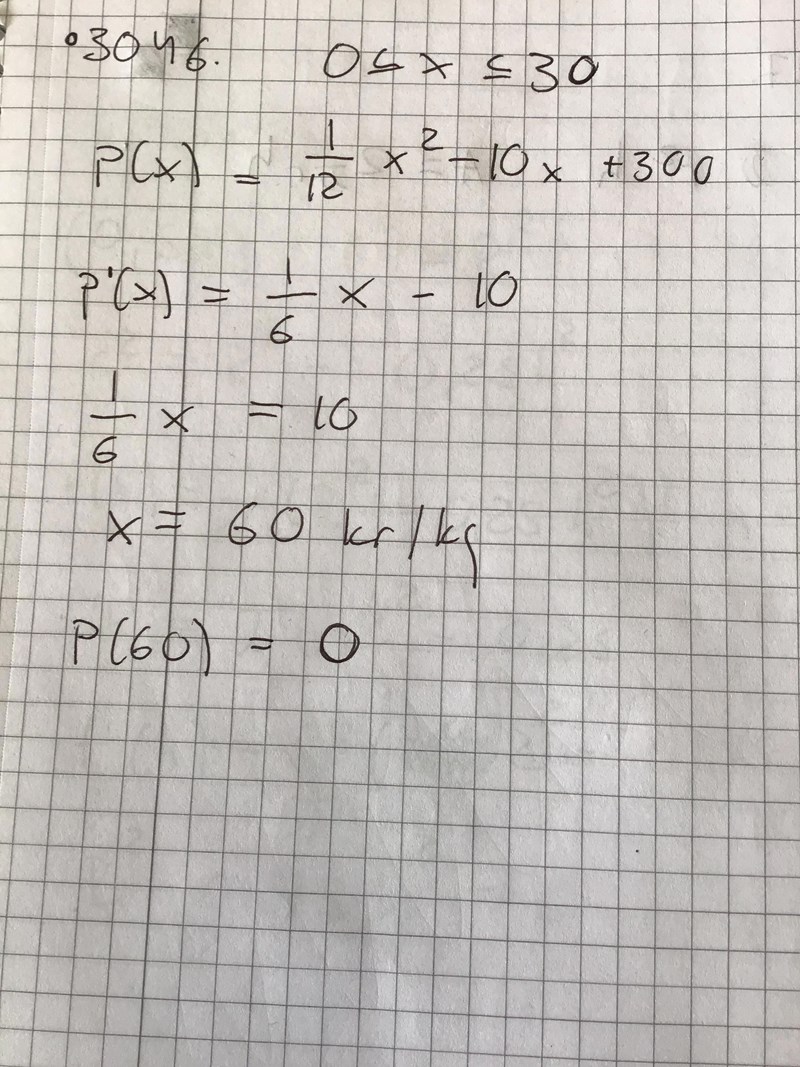 •3046. 0 ≤ x ≤ 30
P(x) = 1/12 x² - 10x + 300
P'(x) = 1/6 x - 10
1/6 x = 10
x = 60 kr/kg
P(60) = 0